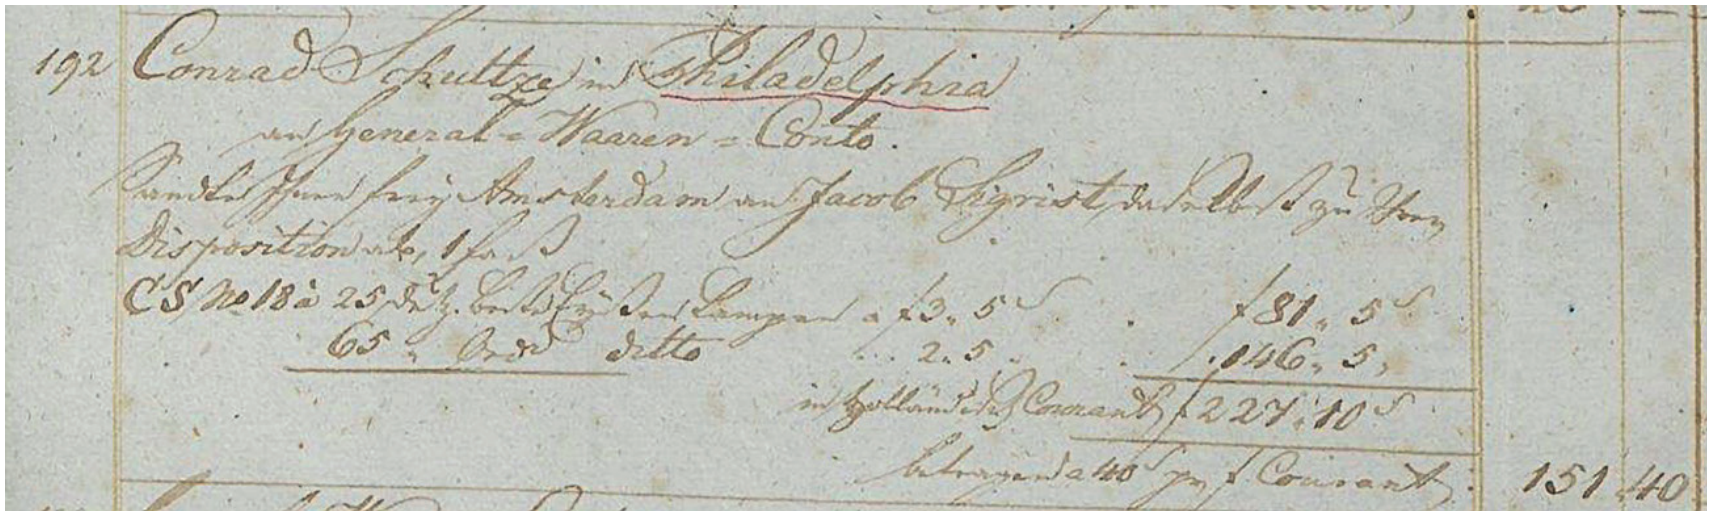 192 Conrad Schultze in Philadelphia
an General=Waaren=Conto.
Sandte Ihme frey Amsterdam an Jacob Sigrist, daselbst zu Ihrer
Disposition ab, 1 Faß
CS No 18 à 25 Dutz. Eyßen Lampen a f 3 " 5 S f 81 " 5 S
65 " Ord ditto 2 " 5 146 " 5
in Holländisch Courant f 227 " 10 S
betragend a 40 S pr f Courant 151 40